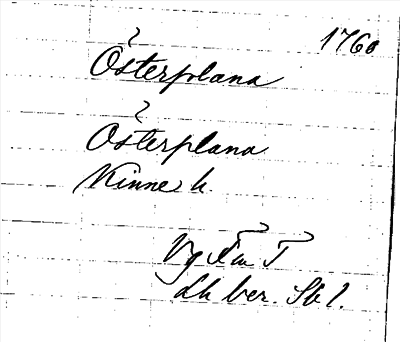 1760
Österplana
Österplana
Kinne h.
Vg Fm T
Lh ber. Sk 1.